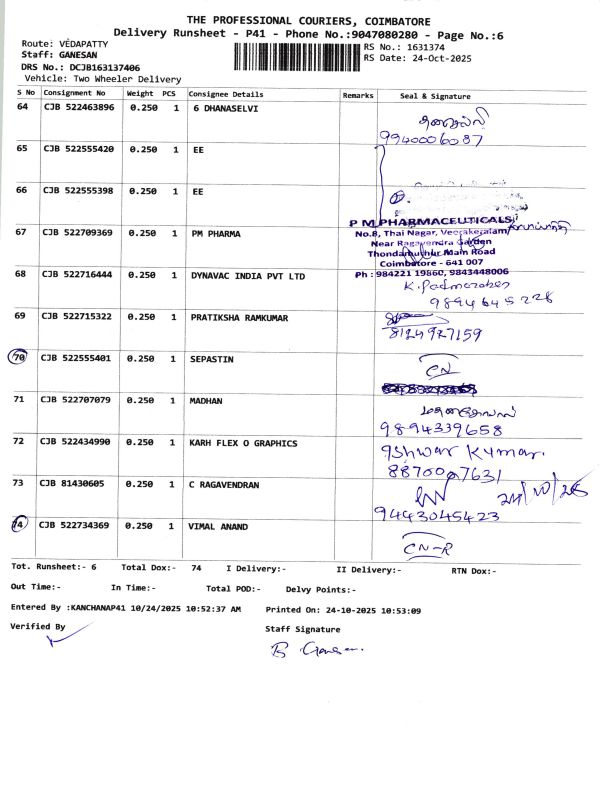 THE PROFESSIONAL COURIERS, COIMBATORE
Delivery Runsheet - P41 - Phone No.:9047080280 - Page No.:6
Route: VEDAPATTY
RS No.: 1631374
Staff: GANESAN
RS Date: 24-Oct-2025
DRS No.: DCJB163137406
Vehicle: Two Wheeler Delivery
S No Consignment No Weight PCS Consignee Details Remarks Seal & Signature
64 CJB 522463896 0.250 1 G DHANASELVI
9940006087
65 CJB 522555420 0.250 1 EE
66 CJB 522555398 0.250 1 EE
P M PHARMACEUTICALS
67 CJB 522709369 0.250 1 PM PHARMA No.8, Thai Nagar, Veerakeralam
Near Ragavendra Garden
Thondamuthur Main Road
Coimbatore - 641 007
68 CJB 522716444 0.250 1 DYNAVAC INDIA PVT LTD Ph : 984221 19860, 9843448006
9894645228
69 CJB 522715322 0.250 1 PRATIKSHA RAMKUMAR
8124927159
70 CJB 522555401 0.250 1 SEPASTIN CN
71 CJB 522707079 0.250 1 MADHAN
9894339658
72 CJB 522434990 0.250 1 KARH FLEX O GRAPHICS
73 CJB 81430605 0.250 1 C RAGAVENDRAN 24/10/25
9443045423
74 CJB 522734369 0.250 1 VIMAL ANAND CN-R
Tot. Runsheet:- 6 Total Dox:- 74 I Delivery:- II Delivery:- RTN Dox:-
Out Time:- In Time:- Total POD:- Delvy Points:-
Entered By :KANCHANAP41 10/24/2025 10:52:37 AM Printed On: 24-10-2025 10:53:09
Verified By Staff Signature